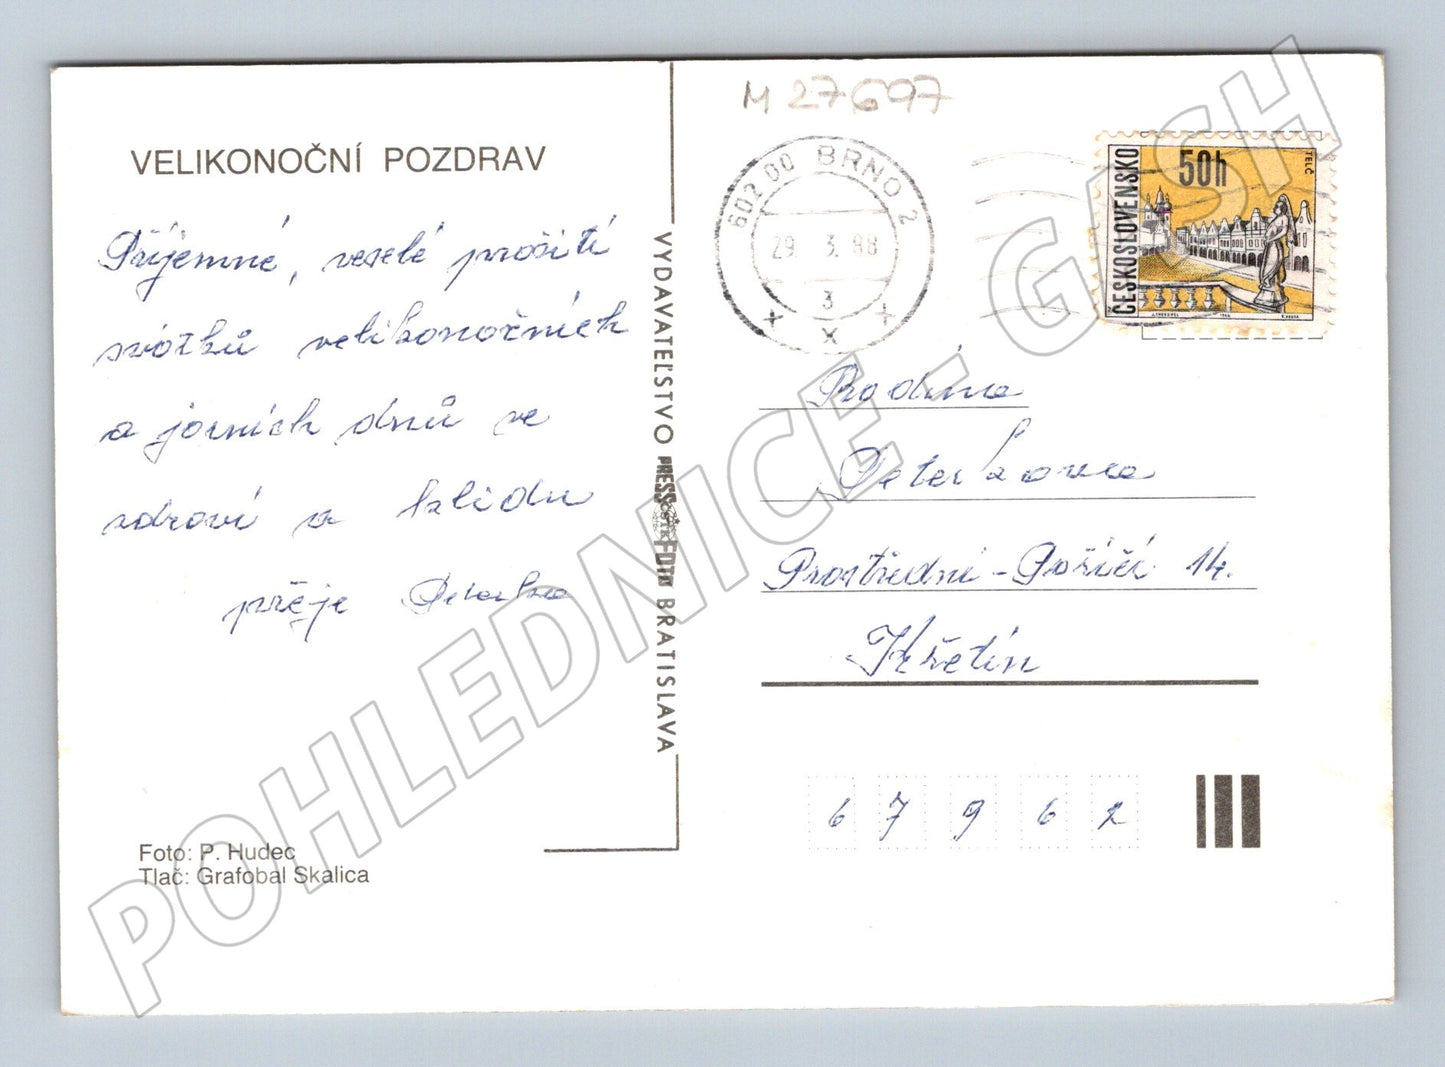 VELIKONOČNÍ POZDRAV
Příjemné, veselé prožití
svátků velikonočních
a jarních dnů ve
zdraví a klidu
přeje
Foto: P. Hudec
Tlač: Grafobal Skalica
VYDAVATEĽSTVO PRESSFOTO BRATISLAVA
M 27697
602 00 BRNO 2
29. 3. 88
3
ČESKOSLOVENSKO
50h
TELČ
Rodina
Peterkova
Prostřední-Poříčí 14.
Křetín
67962
POHLEDNICE - GASH